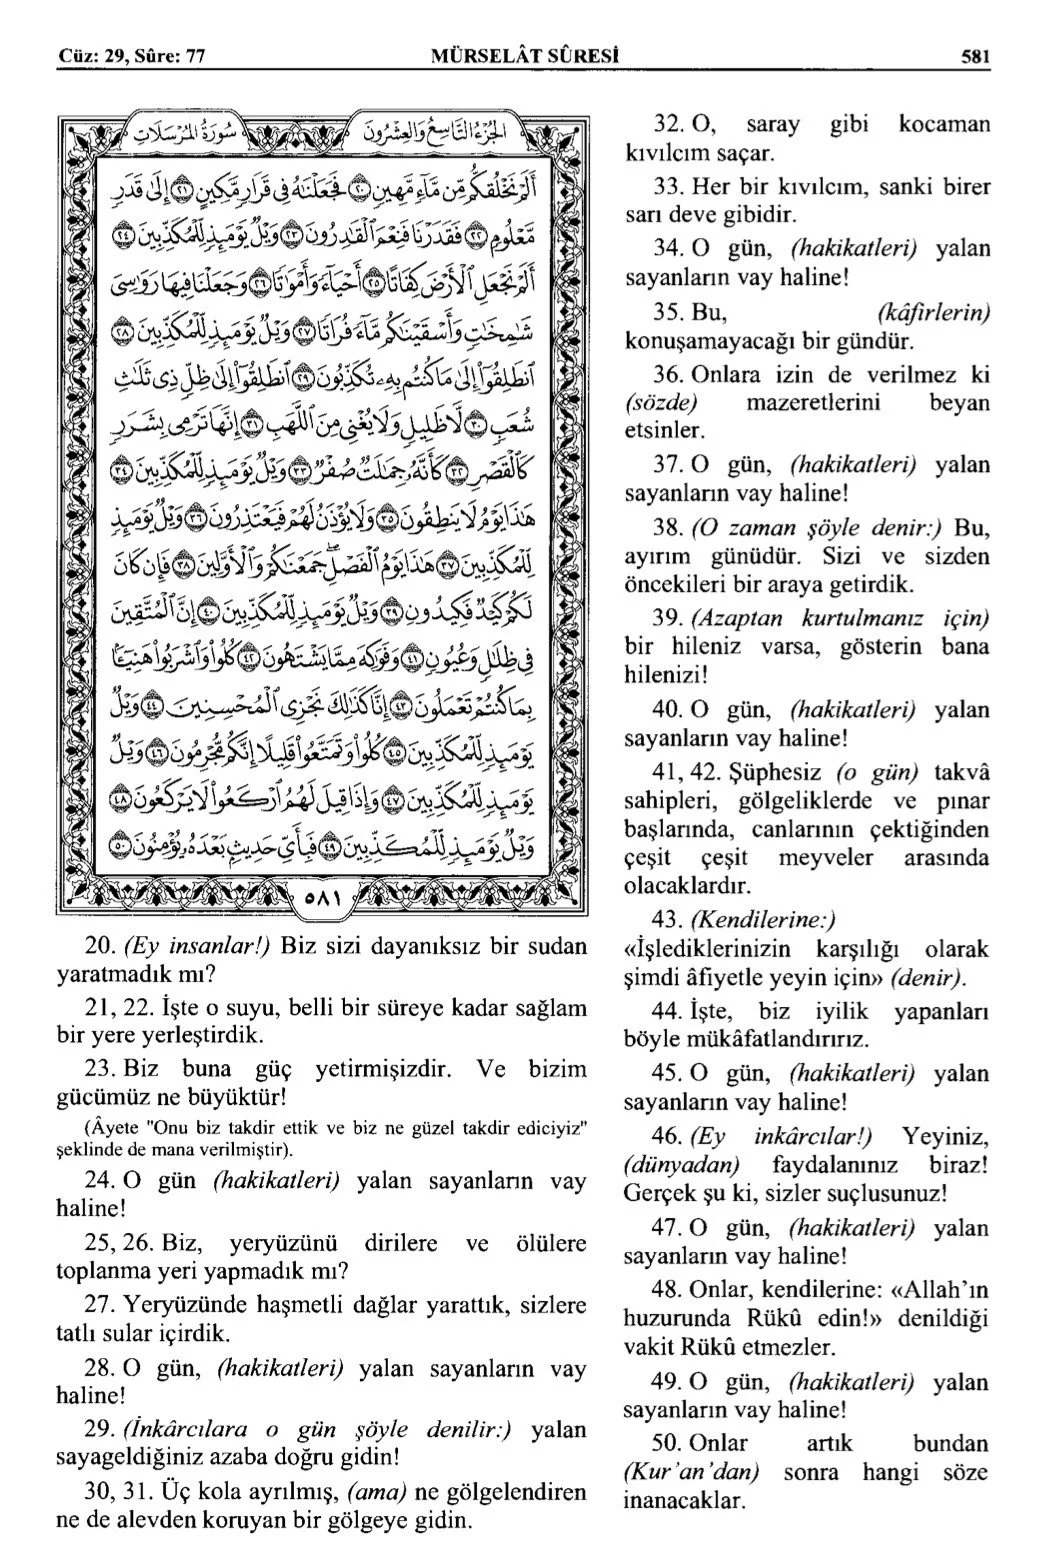 Cüz: 29, Sûre: 77 MÜRSELÂT SÛRESİ 581
سُورَةُ المُرْسَلَاتِ الجُزْءُ التَّاسِعُ وَالعِشْرُونَ
أَلَمْ نَخْلُقكُّم مِّن مَّآءٍ مَّهِينٍ ﴿٢٠﴾ فَجَعَلْنَٰهُ فِى قَرَارٍ مَّكِينٍ ﴿٢١﴾ إِلَىٰ قَدَرٍ
مَّعْلُومٍ ﴿٢٢﴾ فَقَدَرْنَا فَنِعْمَ ٱلْقَٰدِرُونَ ﴿٢٣﴾ وَيْلٌ يَوْمَئِذٍ لِّلْمُكَذِّبِينَ ﴿٢٤﴾
أَلَمْ نَجْعَلِ ٱلْأَرْضَ كِفَاتًا ﴿٢٥﴾ أَحْيَآءً وَأَمْوَٰتًا ﴿٢٦﴾ وَجَعَلْنَا فِيهَا رَوَٰسِىَ
شَٰمِخَٰتٍ وَأَسْقَيْنَٰكُم مَّآءً فُرَاتًا ﴿٢٧﴾ وَيْلٌ يَوْمَئِذٍ لِّلْمُكَذِّبِينَ ﴿٢٨﴾
ٱنطَلِقُوٓا۟ إِلَىٰ مَا كُنتُم بِهِۦ تُكَذِّبُونَ ﴿٢٩﴾ ٱنطَلِقُوٓا۟ إِلَىٰ ظِلٍّ ذِى ثَلَٰثِ
شُعَبٍ ﴿٣٠﴾ لَّا ظَلِيلٍ وَلَا يُغْنِى مِنَ ٱللَّهَبِ ﴿٣١﴾ إِنَّهَا تَرْمِى بِشَرَرٍ
كَٱلْقَصْرِ ﴿٣٢﴾ كَأَنَّهُۥ جِمَٰلَتٌ صُفْرٌ ﴿٣٣﴾ وَيْلٌ يَوْمَئِذٍ لِّلْمُكَذِّبِينَ ﴿٣٤﴾
هَٰذَا يَوْمُ لَا يَنطِقُونَ ﴿٣٥﴾ وَلَا يُؤْذَنُ لَهُمْ فَيَعْتَذِرُونَ ﴿٣٦﴾ وَيْلٌ يَوْمَئِذٍ
لِّلْمُكَذِّبِينَ ﴿٣٧﴾ هَٰذَا يَوْمُ ٱلْفَصْلِ ۖ جَمَعْنَٰكُمْ وَٱلْأَوَّلِينَ ﴿٣٨﴾ فَإِن كَانَ
لَكُمْ كَيْدٌ فَكِيدُونِ ﴿٣٩﴾ وَيْلٌ يَوْمَئِذٍ لِّلْمُكَذِّبِينَ ﴿٤٠﴾ إِنَّ ٱلْمُتَّقِينَ
فِى ظِلَٰلٍ وَعُيُونٍ ﴿٤١﴾ وَفَوَٰكِهَ مِمَّا يَشْتَهُونَ ﴿٤٢﴾ كُلُوا۟ وَٱشْرَبُوا۟ هَنِيٓـًٔۢا
بِمَا كُنتُمْ تَعْمَلُونَ ﴿٤٣﴾ إِنَّا كَذَٰلِكَ نَجْزِى ٱلْمُحْسِنِينَ ﴿٤٤﴾ وَيْلٌ
يَوْمَئِذٍ لِّلْمُكَذِّبِينَ ﴿٤٥﴾ كُلُوا۟ وَتَمَتَّعُوا۟ قَلِيلًا إِنَّكُم مُّجْرِمُونَ ﴿٤٦﴾ وَيْلٌ
يَوْمَئِذٍ لِّلْمُكَذِّبِينَ ﴿٤٧﴾ وَإِذَا قِيلَ لَهُمُ ٱرْكَعُوا۟ لَا يَرْكَعُونَ ﴿٤٨﴾
وَيْلٌ يَوْمَئِذٍ لِّلْمُكَذِّبِينَ ﴿٤٩﴾ فَبِأَىِّ حَدِيثٍۭ بَعْدَهُۥ يُؤْمِنُونَ ﴿٥٠﴾
٥٨١
20. (Ey insanlar!) Biz sizi dayanıksız bir sudan
yaratmadık mı?
21, 22. İşte o suyu, belli bir süreye kadar sağlam
bir yere yerleştirdik.
23. Biz buna güç yetirmişizdir. Ve bizim
gücümüz ne büyüktür!
(Âyete "Onu biz takdir ettik ve biz ne güzel takdir ediciyiz"
şeklinde de mana verilmiştir).
24. O gün (hakikatleri) yalan sayanların vay
haline!
25, 26. Biz, yeryüzünü dirilere ve ölülere
toplanma yeri yapmadık mı?
27. Yeryüzünde haşmetli dağlar yarattık, sizlere
tatlı sular içirdik.
28. O gün, (hakikatleri) yalan sayanların vay
haline!
29. (İnkârcılara o gün şöyle denilir:) yalan
sayageldiğiniz azaba doğru gidin!
30, 31. Üç kola ayrılmış, (ama) ne gölgelendiren
ne de alevden koruyan bir gölgeye gidin.
32. O, saray gibi kocaman
kıvılcım saçar.
33. Her bir kıvılcım, sanki birer
sarı deve gibidir.
34. O gün, (hakikatleri) yalan
sayanların vay haline!
35. Bu, (kâfirlerin)
konuşamayacağı bir gündür.
36. Onlara izin de verilmez ki
(sözde) mazeretlerini beyan
etsinler.
37. O gün, (hakikatleri) yalan
sayanların vay haline!
38. (O zaman şöyle denir:) Bu,
ayırım günüdür. Sizi ve sizden
öncekileri bir araya getirdik.
39. (Azaptan kurtulmanız için)
bir hileniz varsa, gösterin bana
hilenizi!
40. O gün, (hakikatleri) yalan
sayanların vay haline!
41, 42. Şüphesiz (o gün) takvâ
sahipleri, gölgeliklerde ve pınar
başlarında, canlarının çektiğinden
çeşit çeşit meyveler arasında
olacaklardır.
43. (Kendilerine:)
«İşlediklerinizin karşılığı olarak
şimdi âfiyetle yeyin için» (denir).
44. İşte, biz iyilik yapanları
böyle mükâfatlandırırız.
45. O gün, (hakikatleri) yalan
sayanların vay haline!
46. (Ey inkârcılar!) Yeyiniz,
(dünyadan) faydalanınız biraz!
Gerçek şu ki, sizler suçlusunuz!
47. O gün, (hakikatleri) yalan
sayanların vay haline!
48. Onlar, kendilerine: «Allah’ın
huzurunda Rükû edin!» denildiği
vakit Rükû etmezler.
49. O gün, (hakikatleri) yalan
sayanların vay haline!
50. Onlar artık bundan
(Kur’an’dan) sonra hangi söze
inanacaklar.